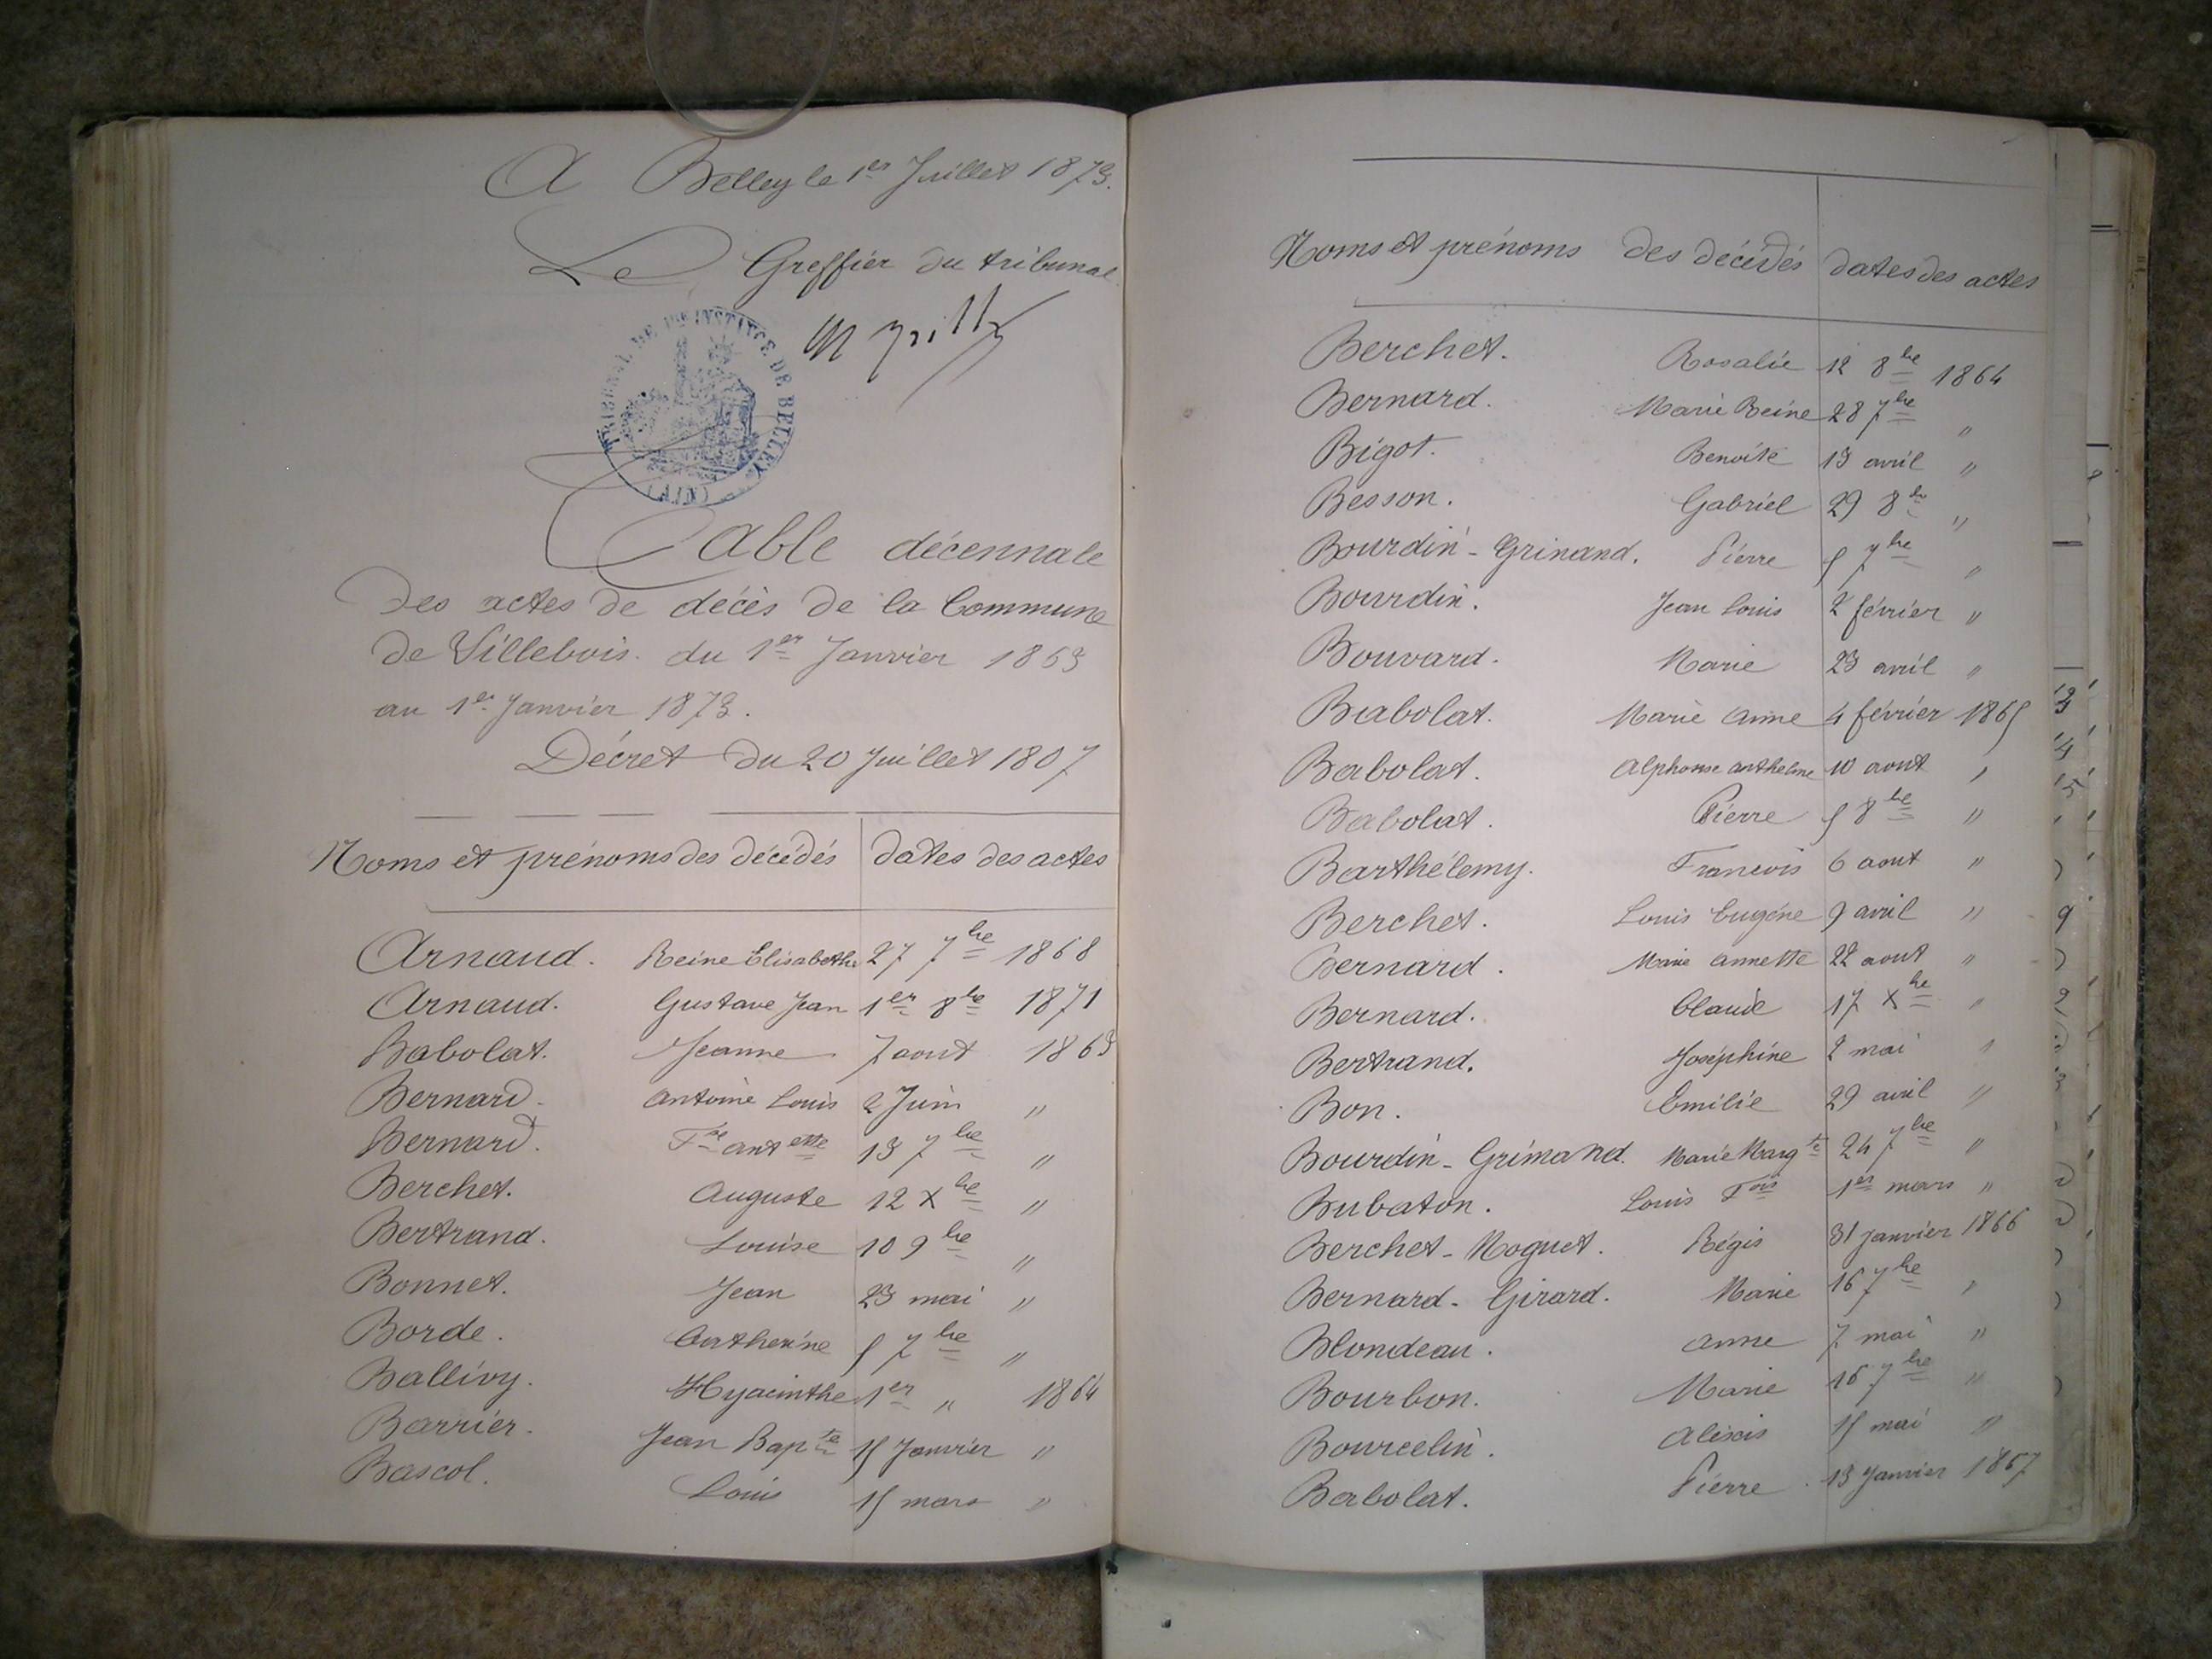 A Belley le 1er Juillet 1873.
Le Greffier du tribunal
TRIBUNAL DE 1re INSTANCE DE BELLEY
(AIN)
Table décennale
des actes de décès de la Commune
de Villebois. du 1er Janvier 1863
au 1er Janvier 1873.
Décret du 20 Juillet 1807
Noms et prénoms des décédés dates des actes
Arnaud. Reine Elisabethe 27 7bre 1868
Arnaud. Gustave Jean 1er 8bre 1871
Babolat. Jeanne 7 aout 1863
Bernard. Antoine Louis 2 Juin "
Bernard. Fse antette 13 7bre "
Berchet. Auguste 12 Xbre "
Bertrand. Louise 10 9bre "
Bonnet. Jean 23 mai "
Borde. Catherine 5 7bre "
Ballivy. Hyacinthe 1er " 1864
Barrier. Jean Bapte 15 Janvier "
Bascol. Louis 15 mars "
Noms et prénoms des décédés dates des actes
Berchet. Rosalie 12 8bre 1864
Bernard. Marie Reine 28 7bre "
Bigot. Benoite 13 avril "
Besson. Gabriel 29 8bre "
Bourdin-Grinand. Pierre 5 7bre "
Bourdin. Jean Louis 2 février "
Bouvard. Marie 23 avril "
Babolat. Marie Anne 4 février 1865
Babolat. Alphonse anthelme 10 aout "
Babolat. Pierre 5 8bre "
Barthélemy. Francois 6 aout "
Berchet. Louis Eugéne 9 avril "
Bernard. Marie annette 22 aout "
Bernard. Claude 17 Xbre "
Bertrand. Joséphine 2 mai "
Bon. Emilie 29 avril "
Bourdin-Grimand. Marie Margte 24 7bre "
Bubaton. Louis Fois 1er mars "
Berchet-Noguet. Régis 31 janvier 1866
Bernard-Girard. Marie 16 7bre "
Blondeau. Anne 7 mai "
Bourbon. Marie 16 7bre "
Bourcelin. Alexis 15 mai "
Babolat. Pierre 13 Janvier 1867